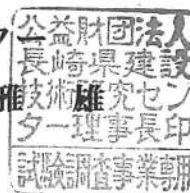 ター
雅 雄
公益財団法人
長崎県建設
技術研究セン
ター理事長印
試験調査事業専用